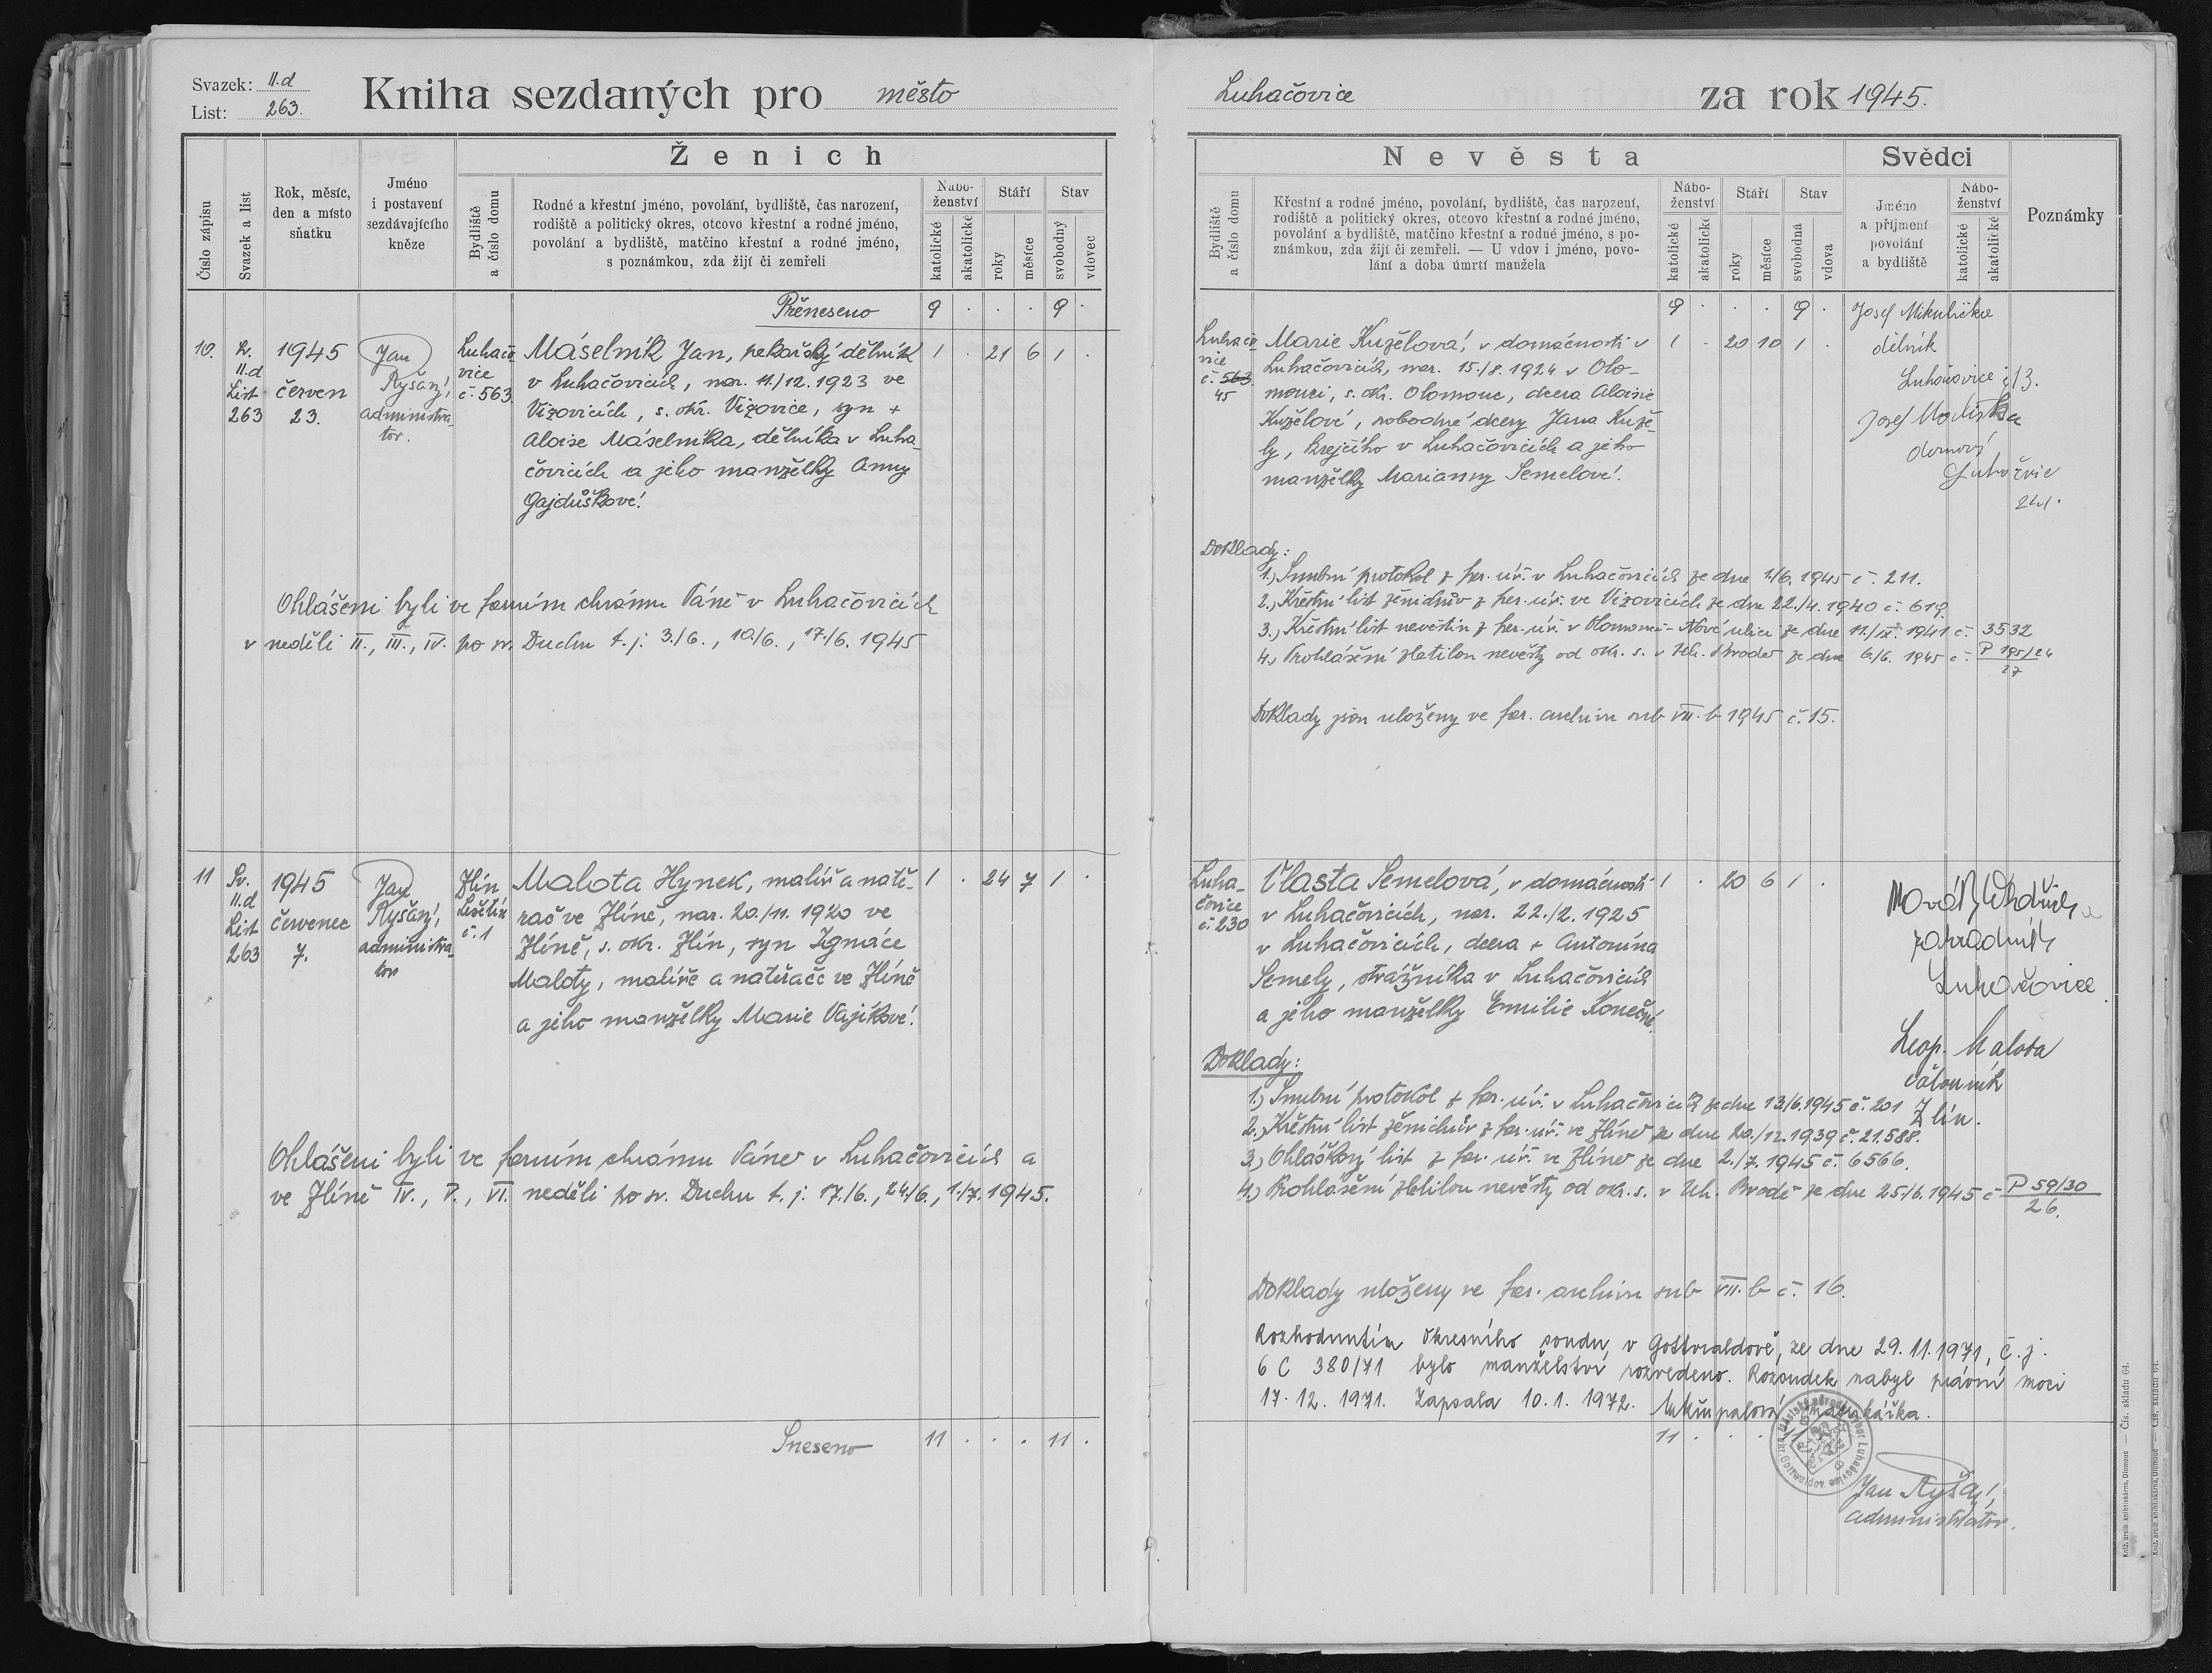 Svazek: II.d
List: 263.
Kniha sezdaných pro město
Číslo zápisu
Svazek a list
Rok, měsíc,
den a místo
sňatku
Jméno
i postavení
sezdávajícího
kněze
Ženich
Bydliště
a číslo domu
Rodné a křestní jméno, povolání, bydliště, čas narození,
rodiště a politický okres, otcovo křestní a rodné jméno,
povolání a bydliště, matčino křestní a rodné jméno,
s poznámkou, zda žijí či zemřeli
Nábo-
ženství
katolické
akatolické
Stáří
roky
měsíce
Stav
svobodný
vdovec
Přeneseno 9 . . . 9 .
10.
Sv.
II.d
List
263
1945
červen
23.
Jan
Ryšavý,
administra-
tor.
Luhačo-
vice
č. 563
Máselník Jan, pekařský dělník
v Luhačovicích, nar. 11./12. 1923 ve
Vizovicích, s. okr. Vizovice, syn +
Aloise Máselníka, dělníka v Luha-
čovicích a jeho manželky Anny
Gajdůškové.
1 . 21 6 1 .
Ohlášeni byli ve farním chrámu Páně v Luhačovicích
v neděli II., III., IV. po sv. Duchu t. j. 3./6., 10./6., 17./6. 1945
11
Sv.
II.d
List
263
1945
červenec
7.
Jan
Ryšavý,
administra-
tor
Zlín
Lešetín
č. 1
Malota Hynek, malíř a natě-
rač ve Zlíně, nar. 20./11. 1920 ve
Zlíně, s. okr. Zlín, syn Ignáce
Maloty, malíře a natěrače ve Zlíně
a jeho manželky Marie Vajíkové.
1 . 24 7 1 .
Ohlášeni byli ve farním chrámu Páně v Luhačovicích a
ve Zlíně IV., V., VI. neděli po sv. Duchu t. j. 17./6., 24./6., 1./7. 1945.
Sneseno 11 . . . 11 .
Luhačovice za rok 1945.
Nevěsta
Bydliště
a číslo domu
Křestní a rodné jméno, povolání, bydliště, čas narození,
rodiště a politický okres, otcovo křestní a rodné jméno,
povolání a bydliště, matčino křestní a rodné jméno, s po-
známkou, zda žijí či zemřeli. — U vdov i jméno, povo-
lání a doba úmrtí manžela
Nábo-
ženství
katolické
akatolické
Stáří
roky
měsíce
Stav
svobodná
vdova
Svědci
Jméno
a příjmení
povolání
a bydliště
Nábo-
ženství
katolické
akatolické
Poznámky
9 . . . 9 .
Luhačo-
vice
č. 563
45
Marie Kuželová, v domácnosti v
Luhačovicích, nar. 15./8. 1924 v Olo-
mouci, s. okr. Olomouc, dcera Aloisie
Kuželové, svobodné dcery Jana Kuže-
ly, krejčího v Luhačovicích a jeho
manželky Marianny Semelové.
1 . 20 10 1 .
Josef Mikulička
dělník
Luhačovice č. 13.
Josef
domovní
Luhačovice
Doklady:
1.) Snubní protokol z far. úř. v Luhačovicích ze dne 1./6. 1945 č. 211.
2.) Křestní list ženichův z far. úř. ve Vizovicích ze dne 22./4. 1940 č. 619.
3.) Křestní list nevěstin z far. úř. v Olomouci - Nové ulici ze dne 11./IX. 1941 č. 3532
4.) Prohlášení zletilou nevěsty od okr. s. v Uh. Brodě ze dne 6./6. 1945 č. P 195/24
27
Doklady jsou uloženy ve far. archivu sub VII. b 1945 č. 15.
Luha-
čovice
č. 230
Vlasta Semelová, v domácnosti
v Luhačovicích, nar. 22./2. 1925
v Luhačovicích, dcera + Antonína
Semely, strážníka v Luhačovicích
a jeho manželky Emilie Konečné.
1 . 20 6 1 .
zahradník
Luhačovice
Leop. Malota
čalouník
Zlín.
Doklady:
1.) Snubní protokol z far. úř. v Luhačovicích ze dne 13./6. 1945 č. 201
2.) Křestní list ženichův z far. úř. ve Zlíně ze dne 20./12. 1939 č. 21.588.
3.) Ohláškový list z far. úř. ve Zlíně ze dne 2./7. 1945 č. 6566.
4.) Prohlášení zletilou nevěsty od okr. s. v Uh. Brodě ze dne 25./6. 1945 č. P 59/30
26.
Doklady uloženy ve far. archivu sub VII. b č. 16.
Rozhodnutím Okresního soudu v Gottwaldově, ze dne 29. 11. 1971, č. j.
6 C 380/71 bylo manželství rozvedeno. Rozsudek nabyl právní moci
17. 12. 1971. Zapsala 10. 1. 1972. matrikářka.
11 . . . 11
Jan Ryšavý,
administrátor.
Kněž. arcib. knihtiskárna, Olomouc — Čís. skladu 64.